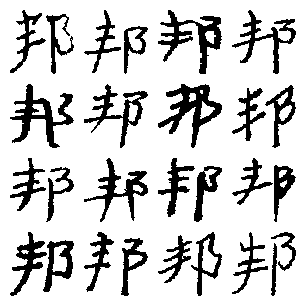 邦邦邦邦
邦邦邦邦
邦邦邦邦
邦邦邦邦